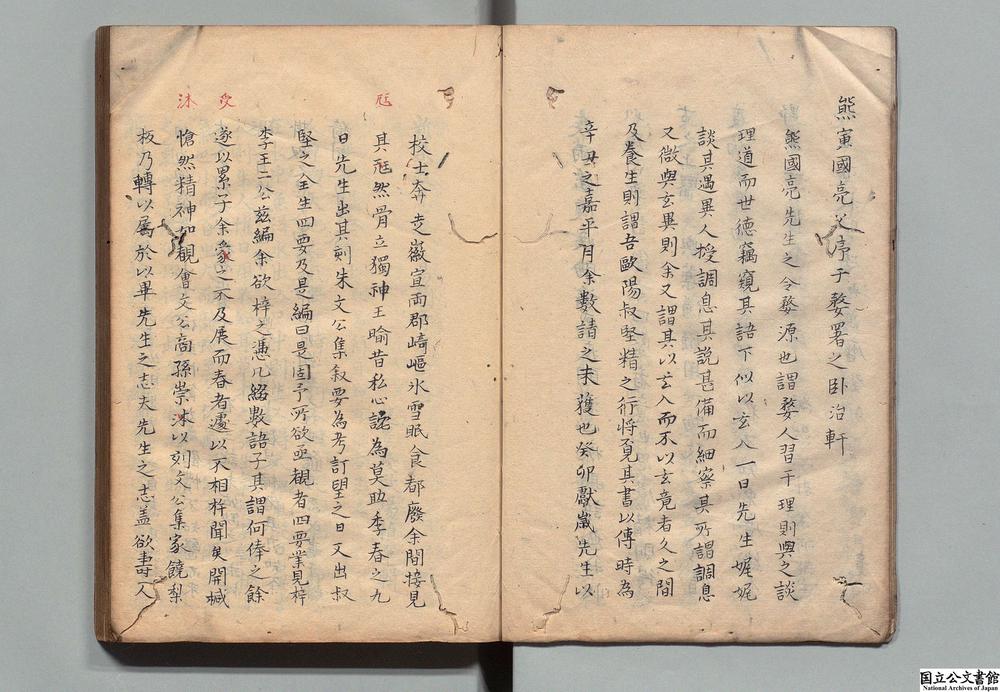 熊寅國亮父序于婺署之卧治軒
熊國亮先生之令婺源也謂婺人習于理則與之談
理道而世德竊窺其語下似以玄入一日先生娓娓
談其遇異人授調息其說甚備而細察其所謂調息
又微與玄異則余又謂其以玄入而不以玄竟者久之間
及養生則謂吾歐陽叔堅精之行將覓其書以傳時為
辛丑之嘉平月余數請之未獲也癸卯獻歲先生以
校士奔走徽宣兩郡崎嶇氷雪眠食都廢余間接見
其尫然骨立獨神王喻昔私心詫為莫助季春之九
日先生出其刻朱文公集叙要為考訂望之日又出叔
堅之全生四要及是編曰是固予所欲亟觀者四要業見梓
李王二公茲編余欲梓之憑几綴數語子其謂何俸之餘
遂以累子余受之不及展而春者遽以不相杵聞矣開椷
愴然精神如覿會文公裔孫崇沐以刻文公集家饒梨
板乃轉以屬於以畢先生之志夫先生之志盖欲壽人
尫
受
沐
国立公文書館
National Archives of Japan